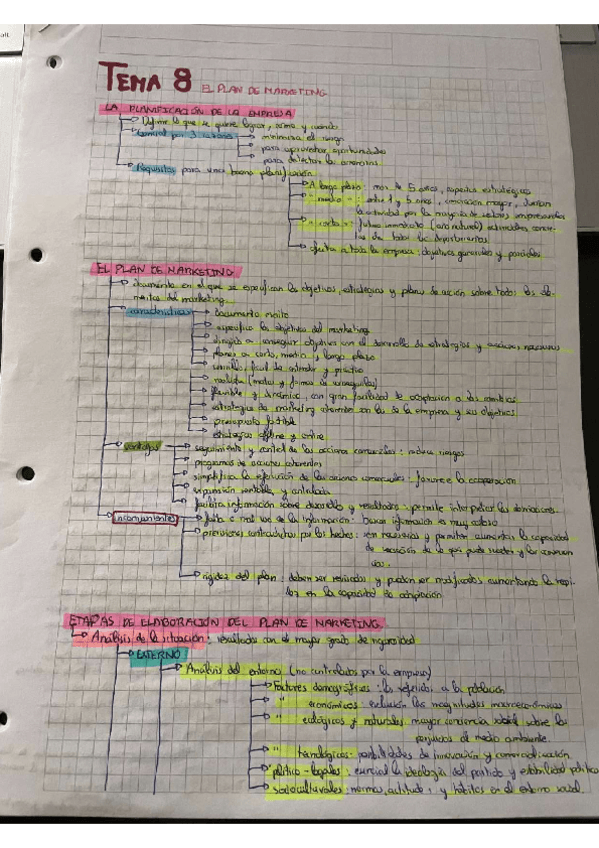 TEMA 8 EL PLAN DE MARKETING
LA PLANIFICACIÓN DE LA EMPRESA
Define lo que se quiere lograr, como y cuando
3 razones minimiza el riesgo
para aprovechar oportunidades
para detectar las amenazas
Requisitos para una buena planificación
A largo plazo: más de 5 años, aspectos estratégicos
" medio " : entre 1 y 5 años, mayor,
la actividad por la mayoría de empresariales
" corto " : futuro inmediato (año natural)
de todos los departamentos
afecta a toda la empresa: objetivos generales y parciales
EL PLAN DE MARKETING
documento en el que se especifican los objetivos, estrategias y planes de acción sobre todos los ele-
mentos del marketing.
características documento escrito
especifica los objetivos del marketing
dirigido a conseguir objetivos con el desarrollo de estrategias y acciones necesarias
planes a corto, medio y largo plazo
sencillo, fácil de entender y práctico
realista (metas y formas de conseguirlas)
flexible y dinámico, con gran facilidad de adaptación a los cambios
estrategias de marketing coherentes con las de la empresa y sus objetivos
presupuesto factible
estrategias offline y online
ventajas seguimiento y control de las acciones comerciales: reduce riesgos
programas de acciones coherentes
simplifica la ejecución de las acciones comerciales: favorece la cooperación
expansión rentable y controlada
facilita información sobre desarrollo y resultados: permite interpretar las desviaciones.
inconvenientes falta o mal uso de la información: buscar información es muy costoso
previsiones contradichas por los hechos: son necesarias y permiten aumentar la capacidad
de reacción de lo que puede suceder y las consecuen
cias.
rigidez del plan: deben ser revisados y pueden ser modificados aumentando la rapi-
dez en la capacidad de adaptación.
ETAPAS DE ELABORACIÓN DEL PLAN DE MARKETING
Análisis de la situación: resultados con el mayor grado de rigurosidad
EXTERNO
Análisis del entorno (no controlados por la empresa)
Factores demográficos: los referidos a la población
" económicos: evolución las magnitudes macroeconómicas
" ecológicos y naturales: mayor conciencia social sobre los
perjuicios al medio ambiente.
" tecnológicos: posibilidades de innovación y comercialización
" político-legales: esencial la ideología del partido y estabilidad política
socioculturales: normas, actitudes y hábitos en el entorno social.